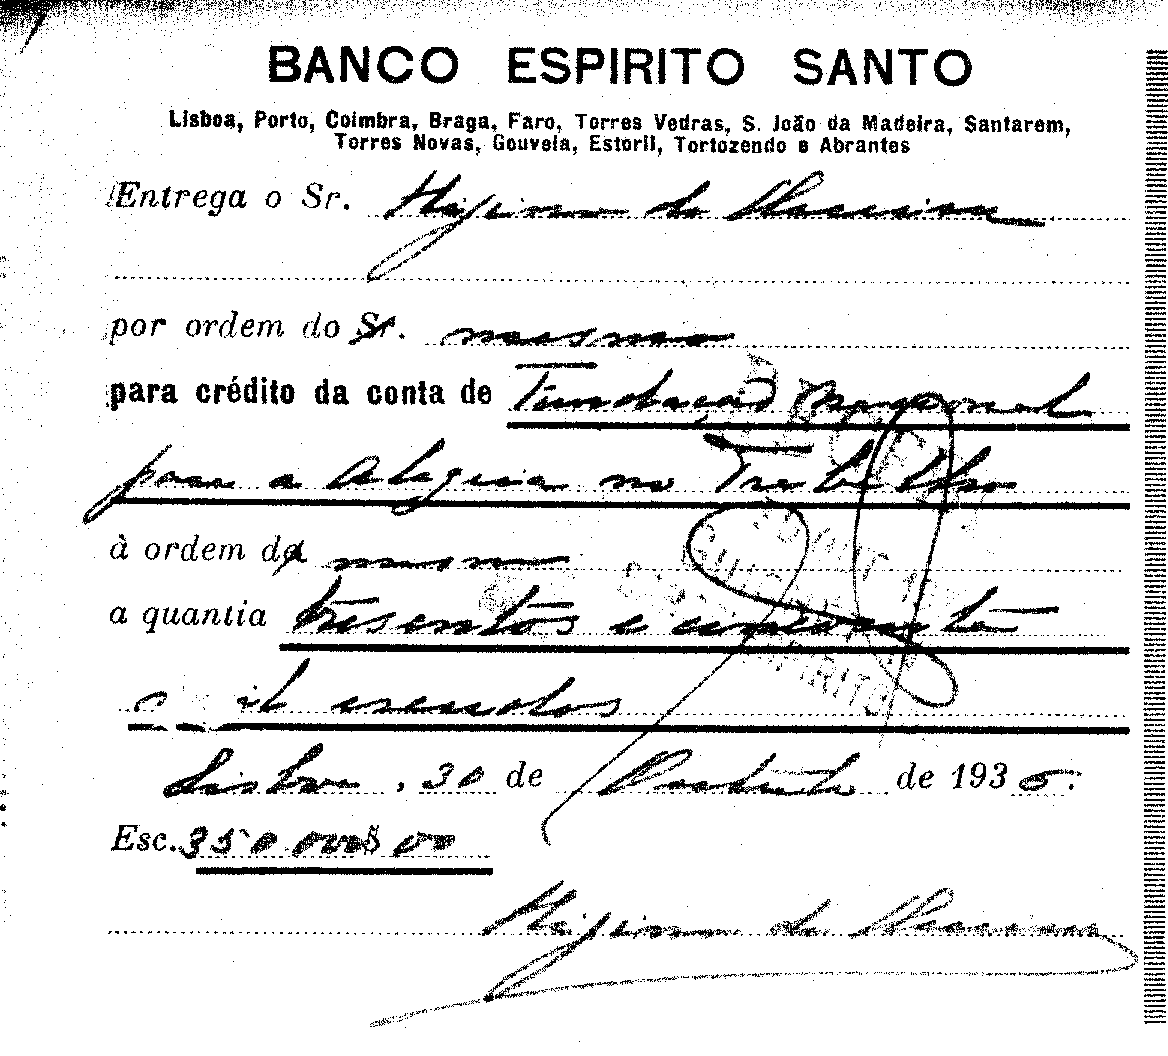 BANCO ESPIRITO SANTO
Lisboa, Porto, Coimbra, Braga, Faro, Torres Vedras, S. João da Madeira, Santarem,
Torres Novas, Gouveia, Estoril, Tortozendo e Abrantes
Entrega o Sr. Higino de
por ordem do Sr. mesmo
para crédito da conta de Fundação Nacional
para a Alegria no Trabalho
à ordem da mesma
a quantia tresentos e cincoenta
mil escudos
Lisboa, 30 de de 193
Esc. 350.000$00
Higino de